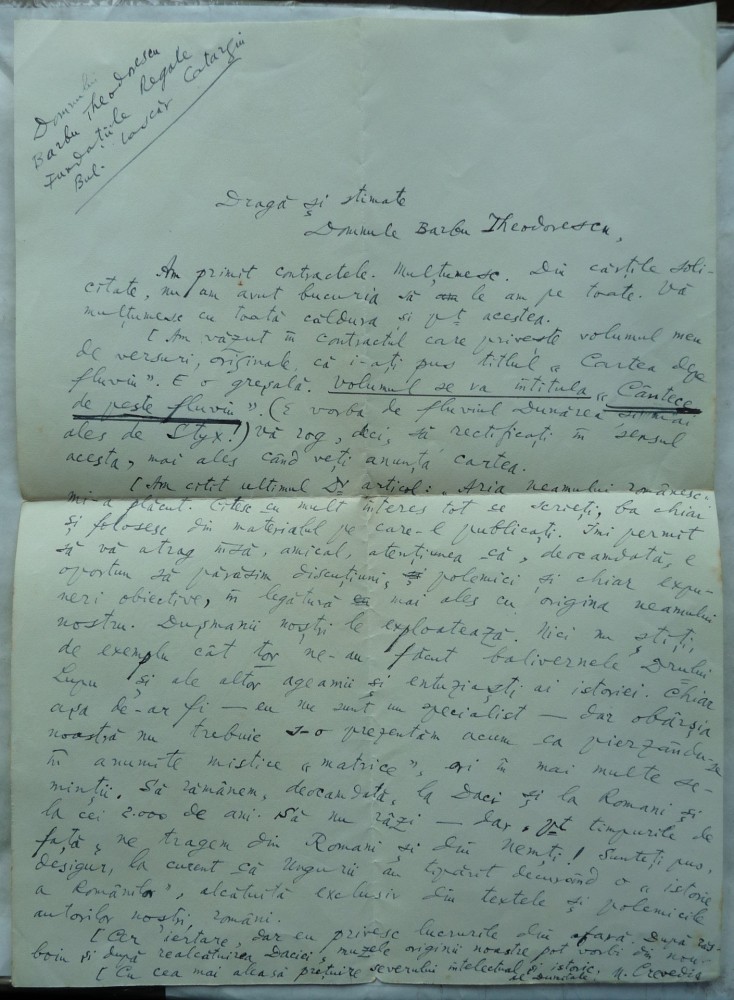 Domnului
Barbu Theodorescu
Fundațiile Regale
Bul. Lascăr Catargiu
Dragă și stimate
Domnule Barbu Theodorescu,
Am primit contractele. Mulțumesc. Din cărțile soli-
citate, nu am avut bucuria să le am pe toate. Vă
mulțumesc cu toată căldura și pt acestea.
[ Am văzut în contractul care privește volumul meu
de versuri, originale, că i-ați pus titlul „Cartea depe
fluviu". E o greșală. Volumul se va intitula „Cântece
de peste fluviu". (E vorba de fluviul Dunărea și mai
ales de Styx!) Vă rog, deci, să rectificați în sensul
acesta, mai ales când veți anunța cartea.
[ Am citit ultimul Dv articol: „Aria neamului românesc.
mi-a plăcut. Citesc cu mult interes tot ce scrieți, ba chiar
și folosesc din materialul pe care-l publicați. Îmi permit
să vă atrag însă, amical, atențiunea că, deocamdată, e
oportun să părăsim discuțiuni, polemici și chiar expu-
neri obiective, în legătură mai ales cu origina neamului
nostru. Dușmanii noștri le exploatează. Nici nu știți,
de exemplu cât rău ne-au făcut balivernele Drului
Lupu și ale altor ageamii și entuziaști ai istoriei. Chiar
așa de-ar fi — eu nu sunt un specialist — dar obârșia
noastră nu trebuie s-o prezentăm acum ca pierzându-se
în anumite mistice „matrice", ori în mai multe se-
minții. Să rămânem, deocamdată, la Daci și la Romani și
la cei 2.000 de ani. Să nu râzi — dar, pt timpurile de
față, ne tragem din Romani și din Nemți! Sunteți pus,
desigur, la curent că Ungurii au tipărit decurând o „istorie
a Românilor", alcătuită exclusiv din textele și polemicile
autorilor noștri, români.
[ Cer iertare, dar eu privesc lucrurile din afară. După răs-
boiu și după realcătuirea Daciei, muzele originii noastre pot vorbi din nou.
[ Cu cea mai aleasă prețuire severului intelectual și istoric
al Dumitale. N. Crevedia